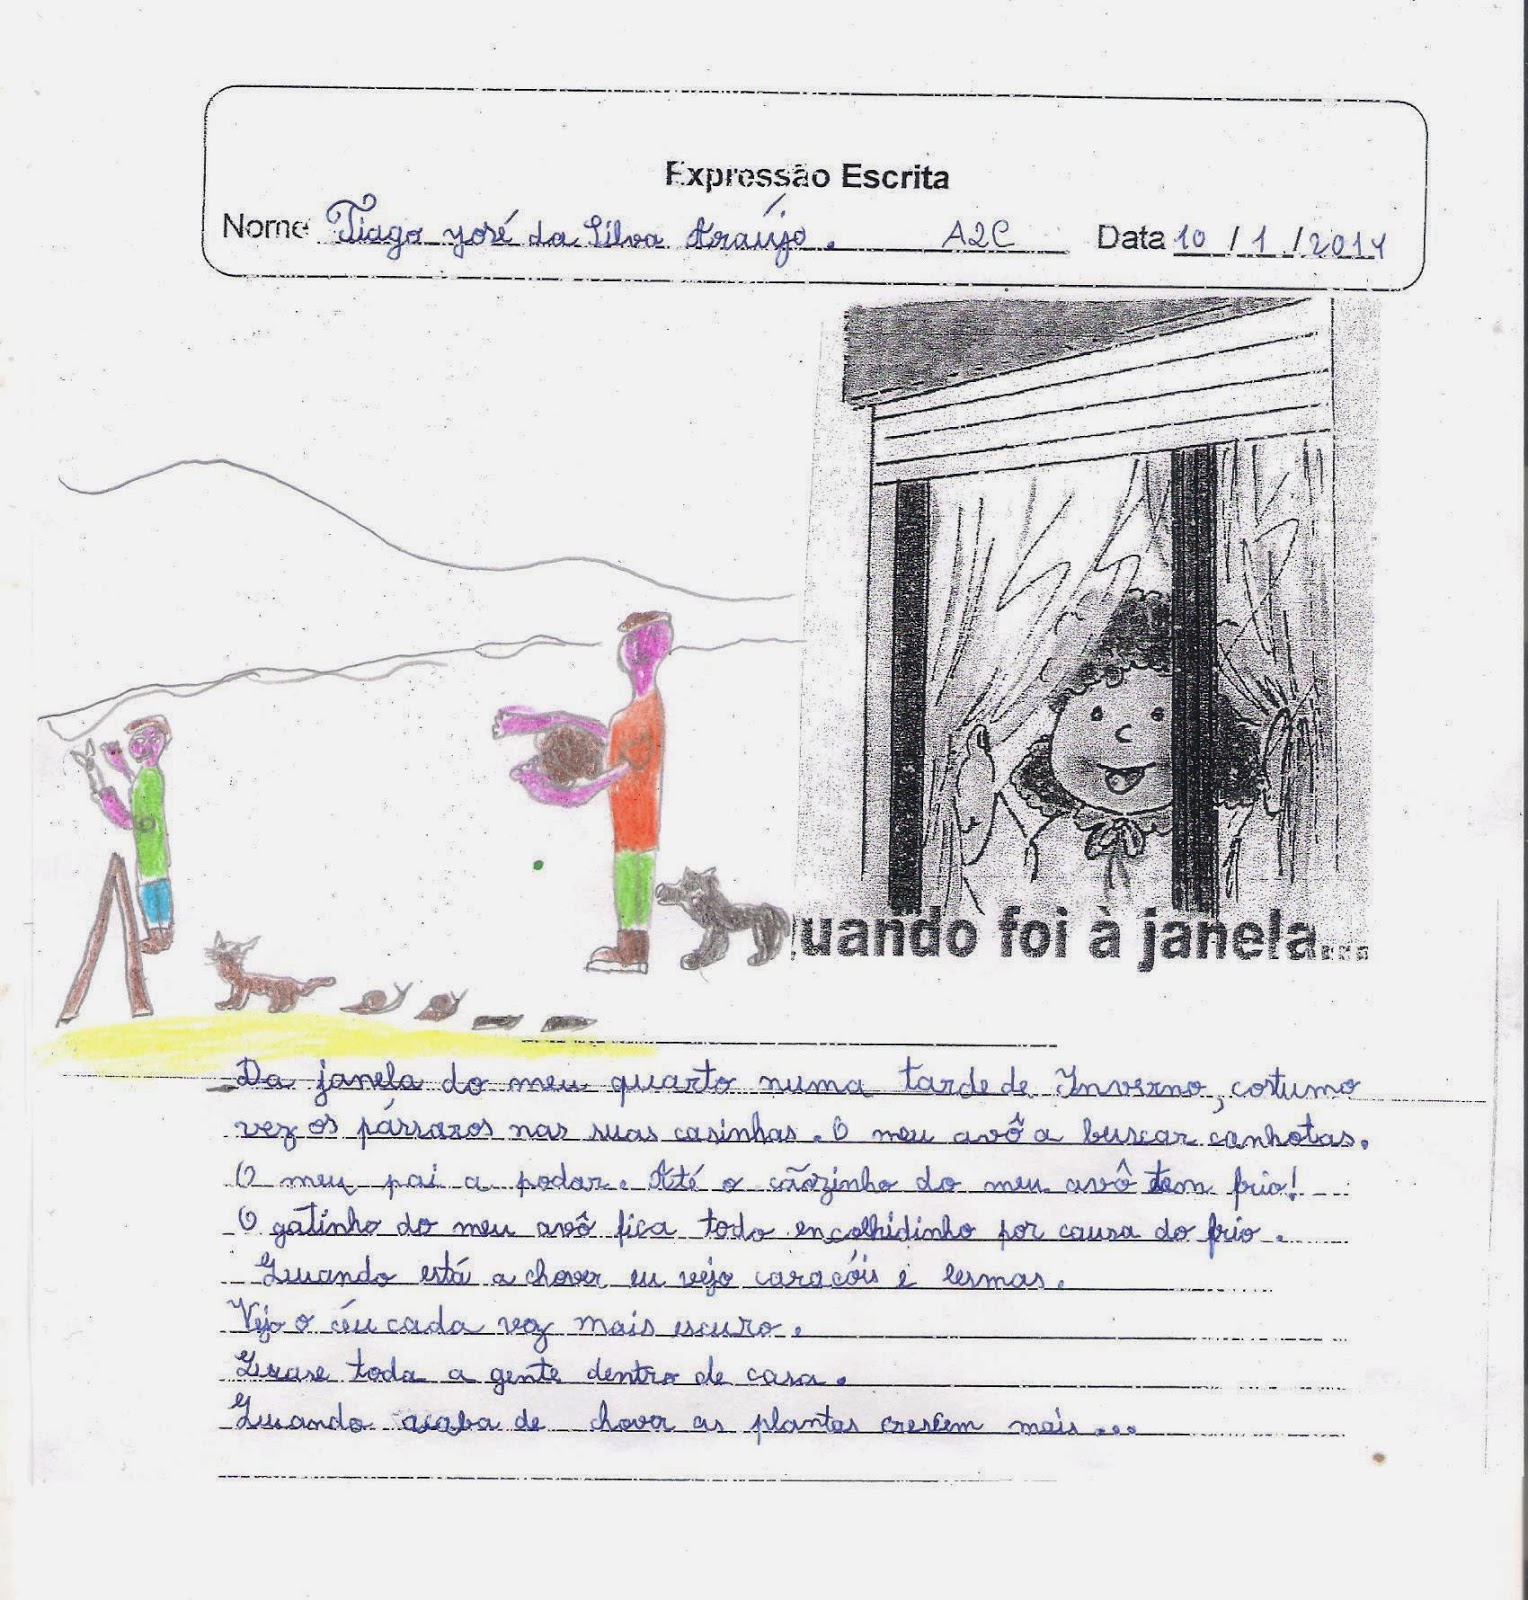 Expressão Escrita
Nome Tiago José da Silva Araújo. A2C Data 10/1/2014
uando foi à janela...
Da janela do meu quarto numa tarde de Inverno, costumo
vez os pássaros nas suas casinhas. O meu avô a buscar canhotas.
O meu pai a podar. Até o cãozinho do meu avô tem frio!
O gatinho do meu avô fica todo encolhidinho por causa do frio.
Quando está a chover eu vejo caracóis e lesmas.
Vejo o céu cada vez mais escuro.
Quase toda a gente dentro de casa.
Quando acaba de chover as plantas crescem mais...